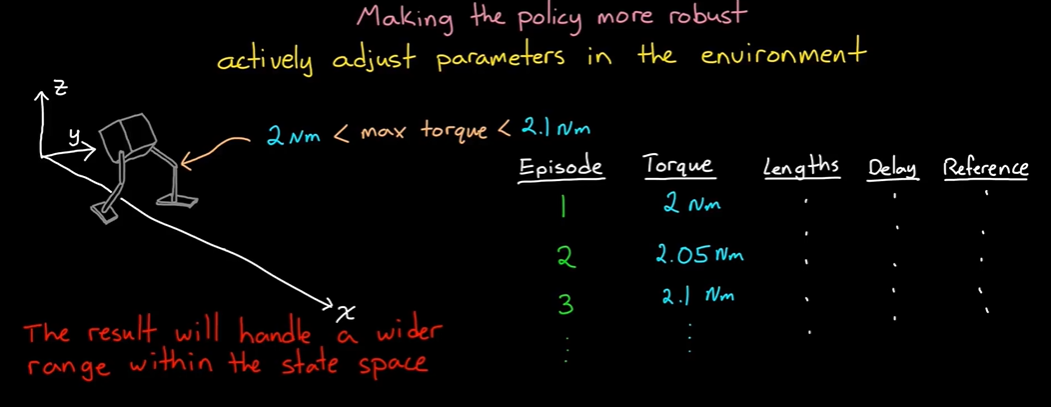 Making the policy more robust
actively adjust parameters in the environment
z
y
2 Nm < max torque < 2.1 Nm
Episode Torque Lengths Delay Reference
1 2 Nm
2 2.05 Nm
3 2.1 Nm
x
The result will handle a wider
range within the state space